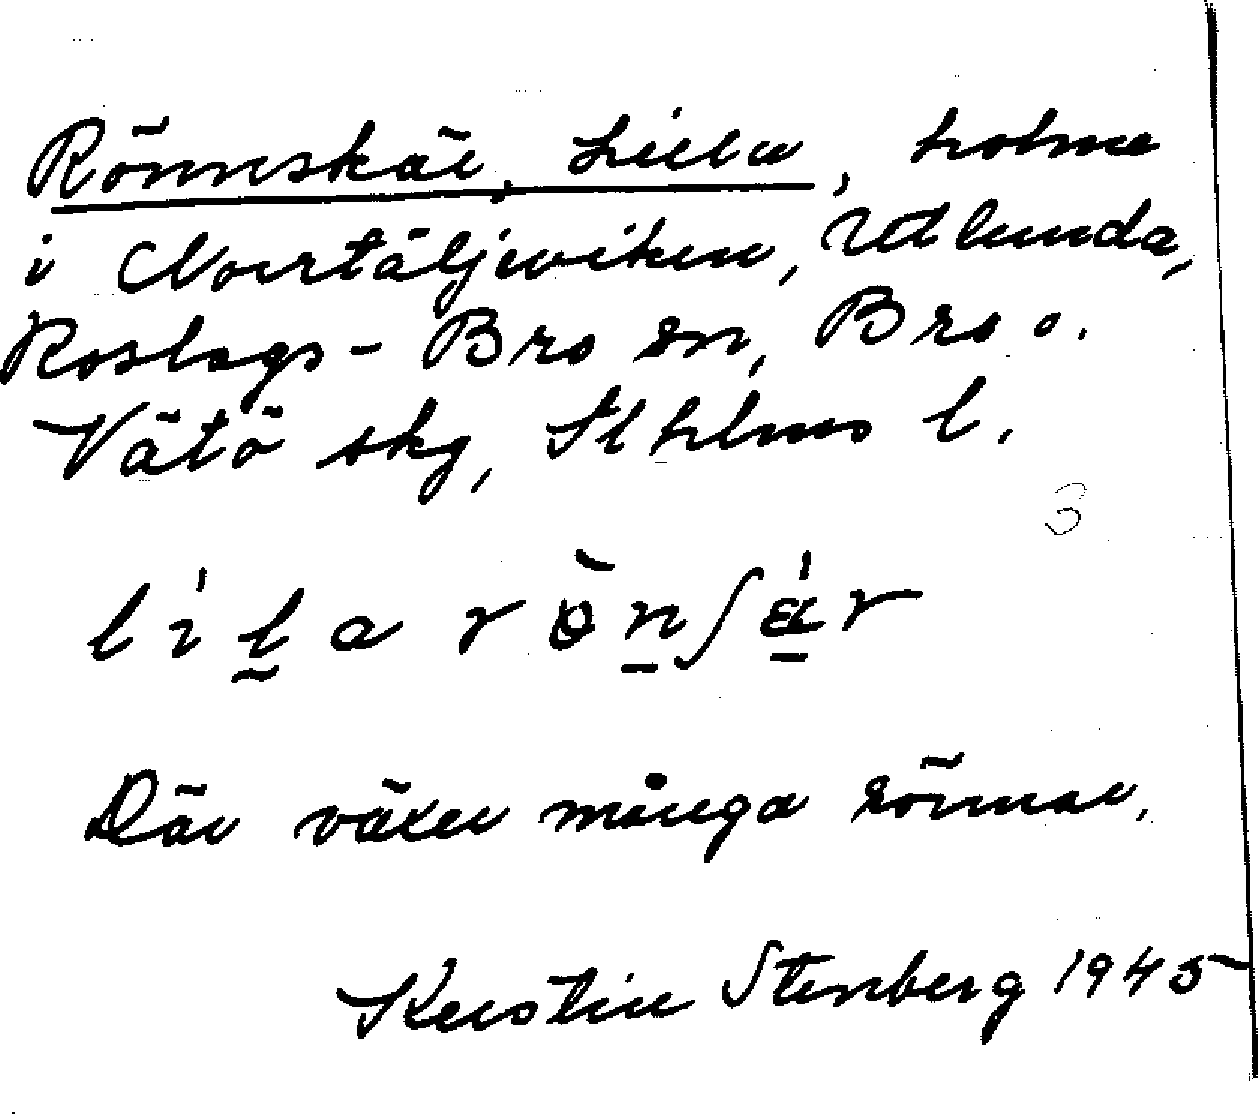 Rönnskär, Lilla, holme
i Norrtäljeviken, Utlunda,
Roslags-Bro sn, Bro o.
Vätö skg, Sthlms l.
3
Där växer många rönnar.
Kerstin Stenberg 1945